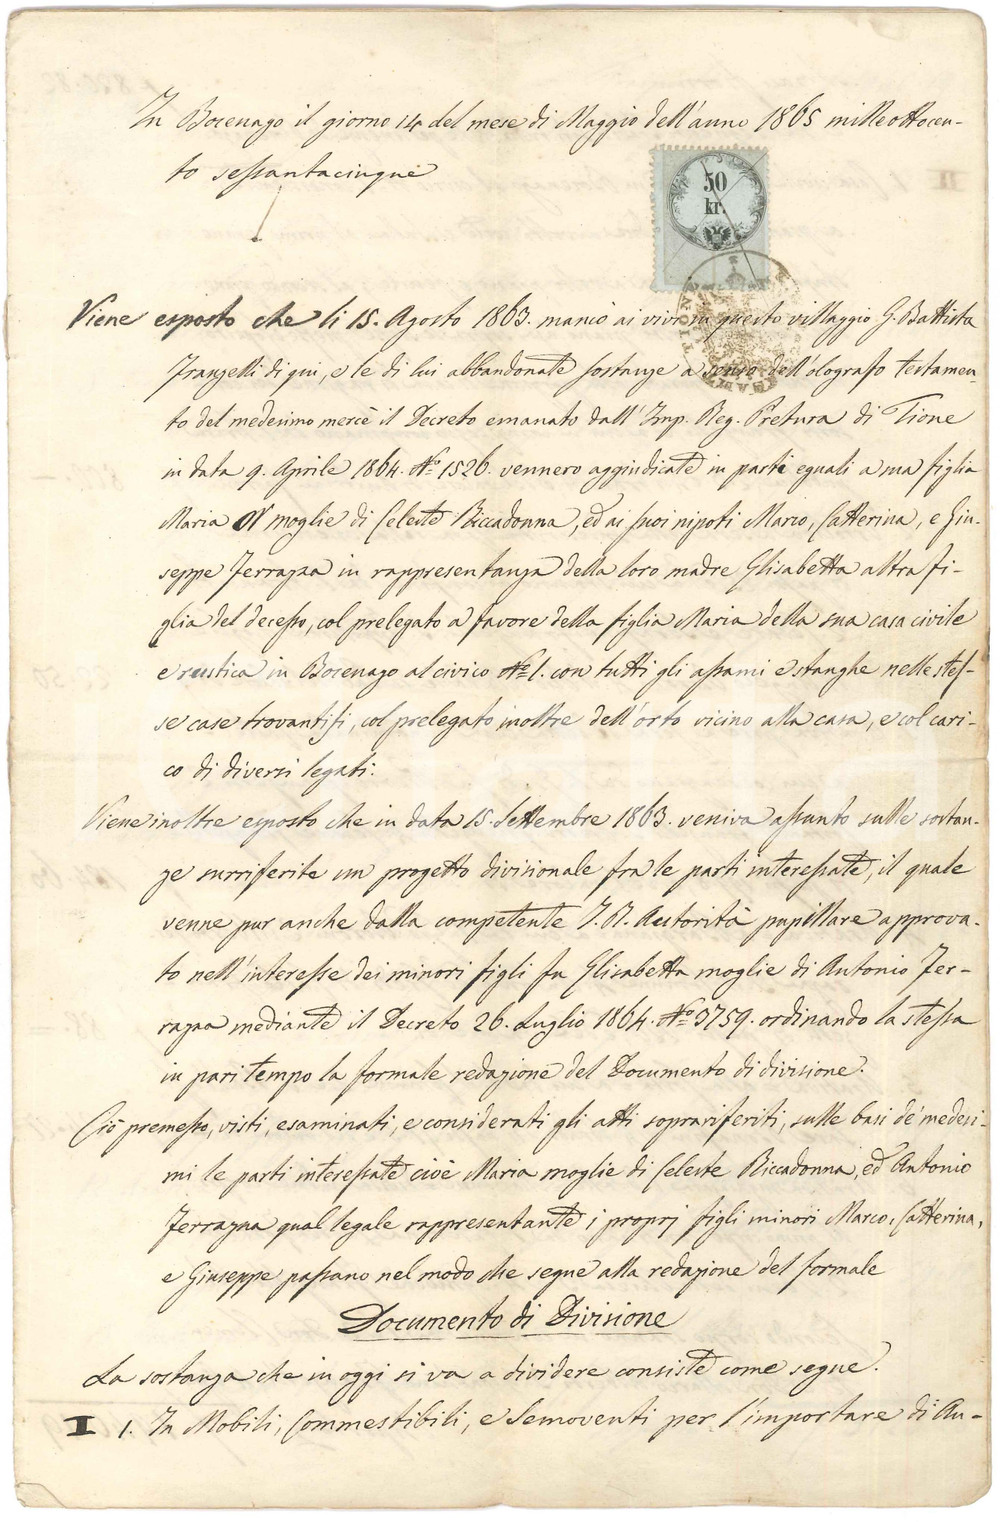 In Bocenago il giorno 14 del mese di Maggio dell'anno 1865 milleottocen-
to sessantacinque
50
kr.
Viene esposto che li 15. Agosto 1863. mancò ai vivi in questo villaggio G. Battista
Franzelli di qui, e le di lui abbandonate sostanze a senso dell'olografo testamen-
to del medesimo mercè il Decreto emanato dall'Imp. Reg. Pretura di Tione
in data 9. Aprile 1864. No 1526. vennero aggiudicate in parti eguali a sua figlia
Maria moglie di Celeste Riccadonna, ed ai suoi nipoti Marco, Catterina, e Giu-
seppe Ferrazza in rappresentanza della loro madre Elisabetta altra fi-
glia del decesso, col prelegato a favore della figlia Maria della sua casa civile
e rustica in Bocenago al civico No 1. con tutti gli assami e stanghe nelle stes-
se case trovantisi, col prelegato inoltre dell'orto vicino alla casa, e col cari-
co di diversi legati.
Viene inoltre esposto che in data 15. Settembre 1863. veniva assunto sulle sostan-
ze surriferite un progetto divisionale fra le parti interessate, il quale
venne pur anche dalla competente I. R. Autorità pupillare approva-
to nell'interesse dei minori figli fu Elisabetta moglie di Antonio Fer-
razza mediante il Decreto 26. Luglio 1864. No 3759. ordinando la stessa
in pari tempo la formale redazione del Documento di divisione.
Ciò premesso, visti, esaminati, e considerati gli atti soprariferiti, sulle basi de' medesi-
mi le parti interessate cioè Maria moglie di Celeste Riccadonna, ed Antonio
Ferrazza qual legale rappresentante i proprj figli minori Marco, Catterina,
e Giuseppe passano nel modo che segue alla redazione del formale
Documento di Divisione
La sostanza che in oggi si va a dividere consiste come segue.
I 1. In Mobili, Commestibili, e Semoventi per l'importare di Au-